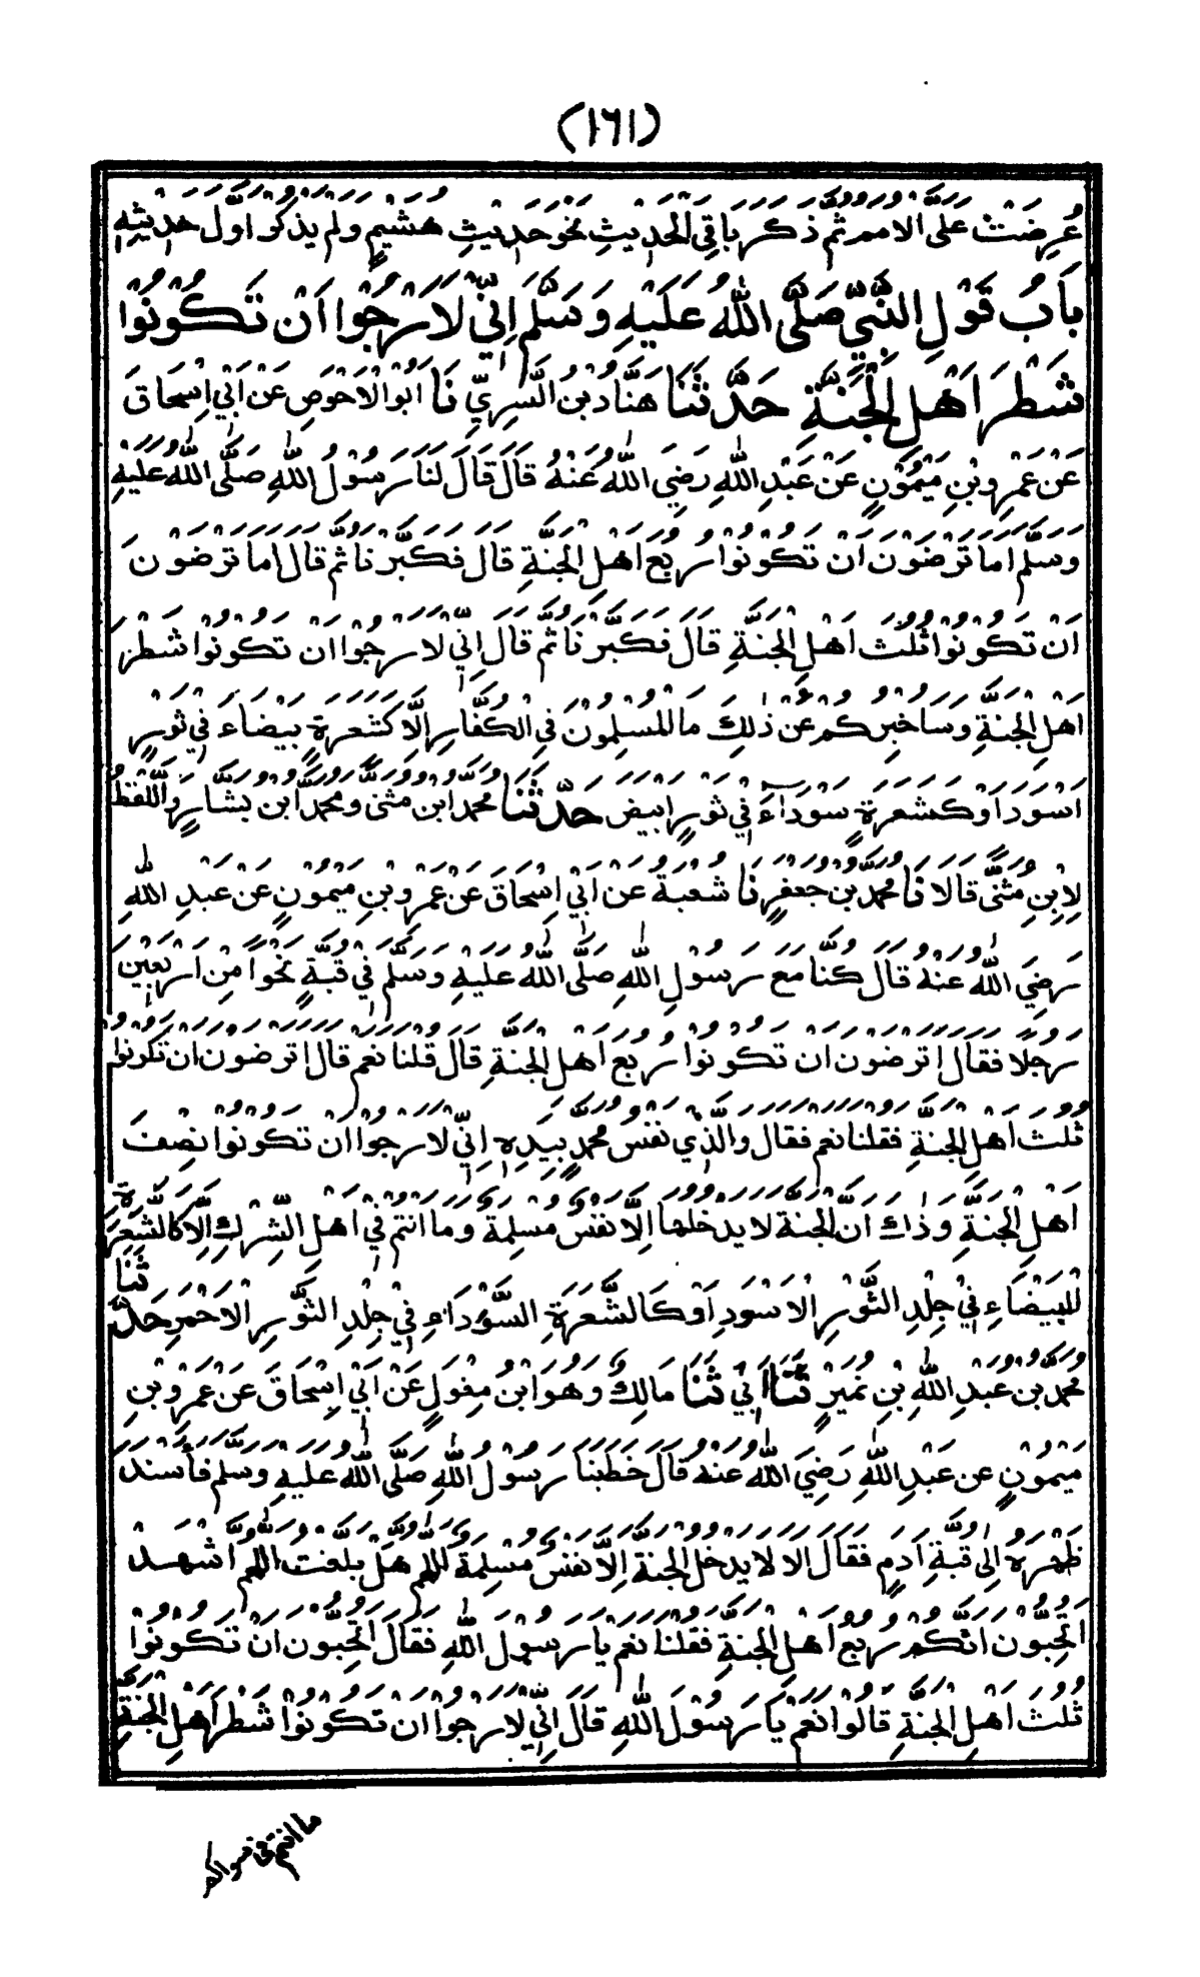 (١٦١)
عُرِضَتْ عَلَى الْاُمَمُ ثُمَّ ذَكَرَ بَاقِيَ الْحَدِيْثِ نَحْوَ حَدِيْثِ هُشَيْمٍ وَلَمْ يَذْكُرْ اَوَّلَ حَدِيْثِهٖ
بَابُ قَوْلِ النَّبِيِّ صَلَّى اللّٰهُ عَلَيْهِ وَسَلَّمَ اِنِّيْ لَاَرْجُوْا اَنْ تَكُوْنُوْا
شَطْرَ اَهْلِ الْجَنَّةِ حَدَّثَنَا هَنَّادُ بْنُ السَّرِيِّ نَا اَبُو الْاَحْوَصِ عَنْ اَبِيْ اِسْحَاقَ
عَنْ عَمْرِو بْنِ مَيْمُوْنٍ عَنْ عَبْدِ اللّٰهِ رَضِيَ اللّٰهُ عَنْهُ قَالَ قَالَ لَنَا رَسُوْلُ اللّٰهِ صَلَّى اللّٰهُ عَلَيْهِ
وَسَلَّمَ اَمَا تَرْضَوْنَ اَنْ تَكُوْنُوْا رُبُعَ اَهْلِ الْجَنَّةِ قَالَ فَكَبَّرْنَا ثُمَّ قَالَ اَمَا تَرْضَوْنَ
اَنْ تَكُوْنُوْا ثُلُثَ اَهْلِ الْجَنَّةِ قَالَ فَكَبَّرْنَا ثُمَّ قَالَ اِنِّيْ لَاَرْجُوْا اَنْ تَكُوْنُوْا شَطْرَ
اَهْلِ الْجَنَّةِ وَسَاُخْبِرُكُمْ عَنْ ذٰلِكَ مَا الْمُسْلِمُوْنَ فِي الْكُفَّارِ اِلَّا كَشَعْرَةٍ بَيْضَاءَ فِيْ ثَوْرٍ
اَسْوَدَ اَوْ كَشَعْرَةٍ سَوْدَاءَ فِيْ ثَوْرٍ اَبْيَضَ حَدَّثَنَا مُحَمَّدُ ابْنُ مُثَنّٰى وَمُحَمَّدُ ابْنُ بَشَّارٍ وَاللَّفْظُ
لِابْنِ مُثَنّٰى قَالَا نَا مُحَمَّدُ بْنُ جَعْفَرٍ نَا شُعْبَةُ عَنْ اَبِيْ اِسْحَاقَ عَنْ عَمْرِو بْنِ مَيْمُوْنٍ عَنْ عَبْدِ اللّٰهِ
رَضِيَ اللّٰهُ عَنْهُ قَالَ كُنَّا مَعَ رَسُوْلِ اللّٰهِ صَلَّى اللّٰهُ عَلَيْهِ وَسَلَّمَ فِيْ قُبَّةٍ نَحْوًا مِنْ اَرْبَعِيْنَ
رَجُلًا فَقَالَ اَتَرْضَوْنَ اَنْ تَكُوْنُوْا رُبُعَ اَهْلِ الْجَنَّةِ قَالَ قُلْنَا نَعَمْ قَالَ اَتَرْضَوْنَ اَنْ تَكُوْنُوْا
ثُلُثَ اَهْلِ الْجَنَّةِ فَقُلْنَا نَعَمْ فَقَالَ وَالَّذِيْ نَفْسُ مُحَمَّدٍ بِيَدِهٖ اِنِّيْ لَاَرْجُوْا اَنْ تَكُوْنُوْا نِصْفَ
اَهْلِ الْجَنَّةِ وَذٰاكَ اَنَّ الْجَنَّةَ لَا يَدْخُلُهَا اِلَّا نَفْسٌ مُسْلِمَةٌ وَمَا اَنْتُمْ فِيْ اَهْلِ الشِّرْكِ اِلَّا كَالشَّعْرَةِ
الْبَيْضَاءِ فِيْ جِلْدِ الثَّوْرِ الْاَسْوَدِ اَوْ كَالشَّعْرَةِ السَّوْدَاءِ فِيْ جِلْدِ الثَّوْرِ الْاَحْمَرِ حَدَّثَنَا
مُحَمَّدُ بْنُ عَبْدِ اللّٰهِ بْنِ نُمَيْرٍ ثَنَا اَبِيْ ثَنَا مَالِكٌ وَهُوَ ابْنُ مِغْوَلٍ عَنْ اَبِيْ اِسْحَاقَ عَنْ عَمْرِو بْنِ
مَيْمُوْنٍ عَنْ عَبْدِ اللّٰهِ رَضِيَ اللّٰهُ عَنْهُ قَالَ خَطَبَنَا رَسُوْلُ اللّٰهِ صَلَّى اللّٰهُ عَلَيْهِ وَسَلَّمَ فَاَسْنَدَ
ظَهْرَهُ اِلٰى قُبَّةِ اَدَمٍ فَقَالَ اَلَا لَا يَدْخُلُ الْجَنَّةَ اِلَّا نَفْسٌ مُسْلِمَةٌ اَللّٰهُمَّ هَلْ بَلَّغْتُ اَللّٰهُمَّ اشْهَدْ
اَتُحِبُّوْنَ اَنَّكُمْ رُبُعُ اَهْلِ الْجَنَّةِ فَقُلْنَا نَعَمْ يَا رَسُوْلَ اللّٰهِ فَقَالَ اَتُحِبُّوْنَ اَنْ تَكُوْنُوْا
ثُلُثَ اَهْلِ الْجَنَّةِ قَالُوْا نَعَمْ يَا رَسُوْلَ اللّٰهِ قَالَ اِنِّيْ لَاَرْجُوْا اَنْ تَكُوْنُوْا شَطْرَ اَهْلِ الْجَنَّةِ
ما انتم في سواكم